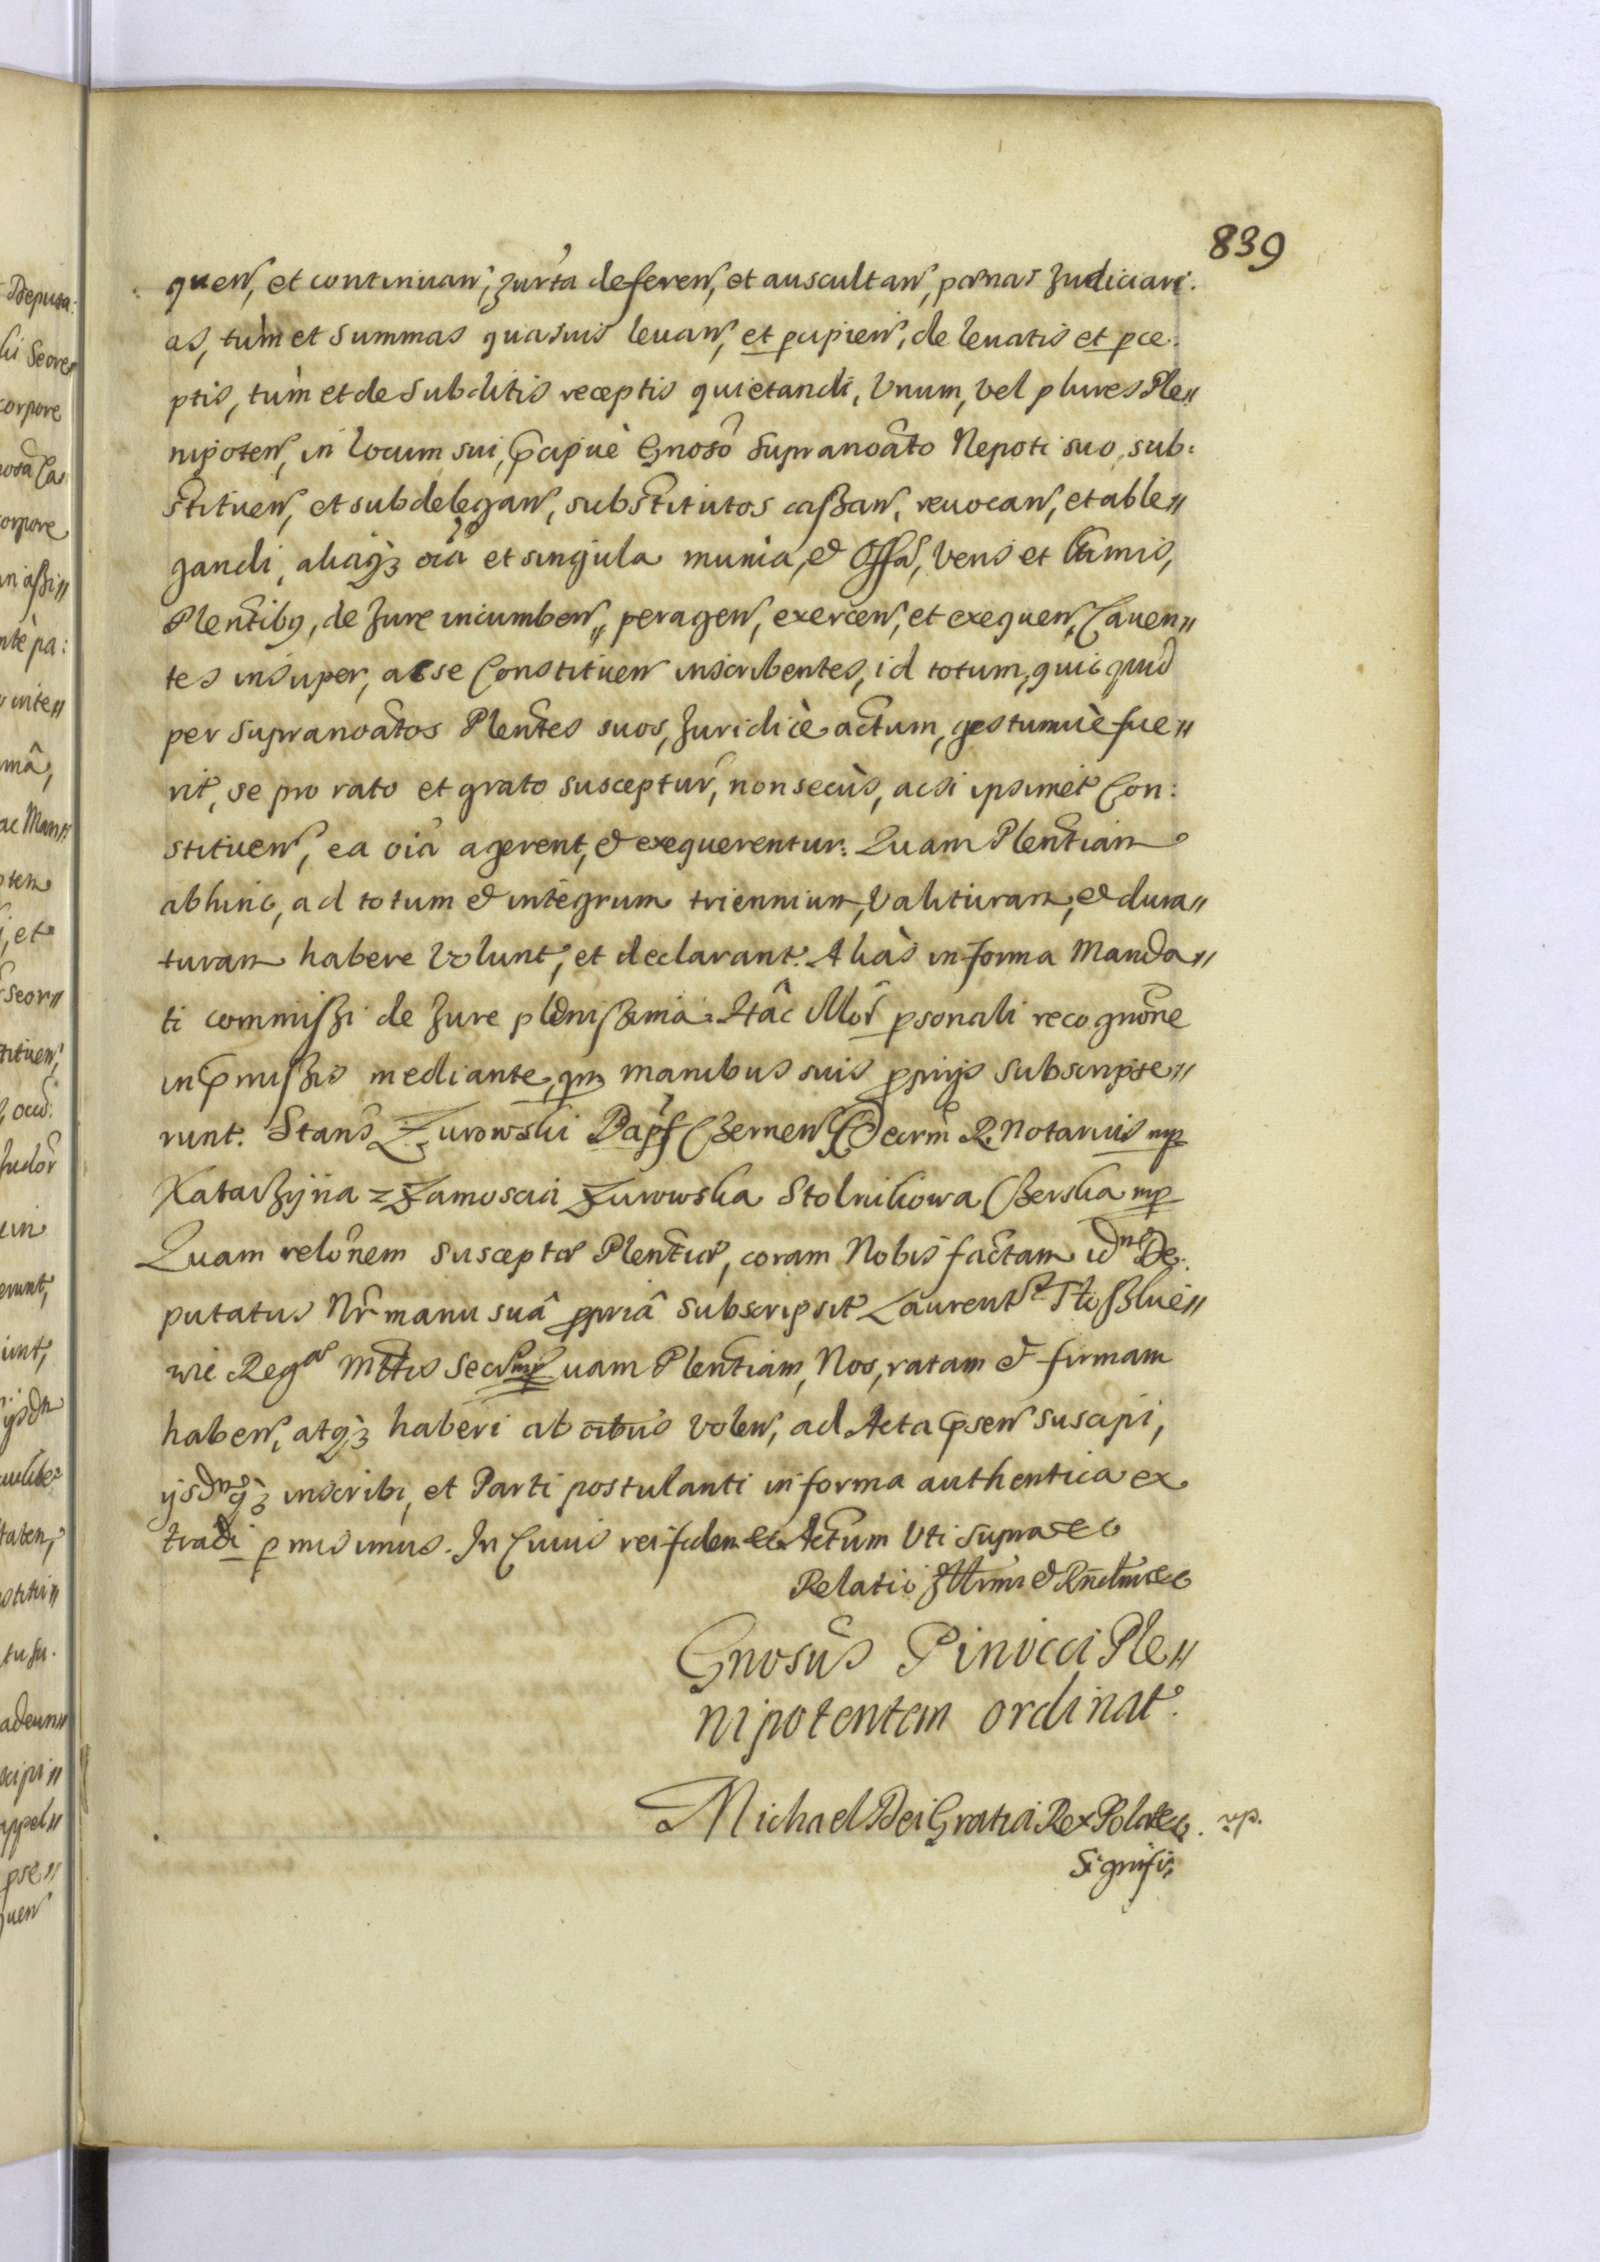 839
quen, et continuan, Jurta deferen, et auscultan, pœnas Judiciari:
as, tùm et summas quasuis leuan, et pcipien, de leuatis et pce:
ptis, tùm et de subditis receptis quietandi, Vnum, vel plures Ple„
nipoten, in locum sui, Pcipuè Gnoso Supranoāto Nepoti suo, sub:
stituen, et subdelegan, substitutos caszan, reuocan, et able„
gandi, aliaqȝ oiā et singula munia, & Offā, veris et Ltimis,
Plentibꝰ, de Jure incumben, peragen, exercen, et exequen, Cauen„
tes insuper, ac se Constituen inscribentes, id totum, quicquid
per Supranoātos Plentes suos, Juridicè actum, gestumuè fue„
rit, se pro rato et grato susceptur, non secùs, acsi ipsimet Con:
stituen, ea oiā agerent, & exequerentur. Quam Plentiam
abhinc, ad totum & integrum triennium, Valituram, & dura„
turam habere Volunt, et declarant. Aliàs in forma Manda„
ti commiszi de Jure pleniszima. Hâc Illor psonali recognōne
in Pmiszis mediante, qm manibus suis pprijs subscripse„
runt. Stans Żurowski Dapf Czernen Decrm R. Notarius mp
Katarzyna z Zamoscia Żurowska Stolnikowa Czerska mp
Quam relōnem susceptæ Plentiæ, coram Nobis factam idne De:
putatus Nr manu suâ ppriâ subscripsit Laurent
wic Regæ Mttis Secr mp Quam Plentiam, Nos, ratam & firmam
haben, atqȝ haberi ab oibus volen, ad Acta Psen suscipi,
ijsdmqȝ inscribi, et Parti postulanti in forma authentica ex
tradi pmisimus. In Cuius rei fidem etc Actum Uti supra etc
Relatio Illrmi & Rndmi etc
Gnosus Pinocci Ple„
nipotentem ordinat.
Michael Dei Gratia Rex Polæ etc.
Signifi: